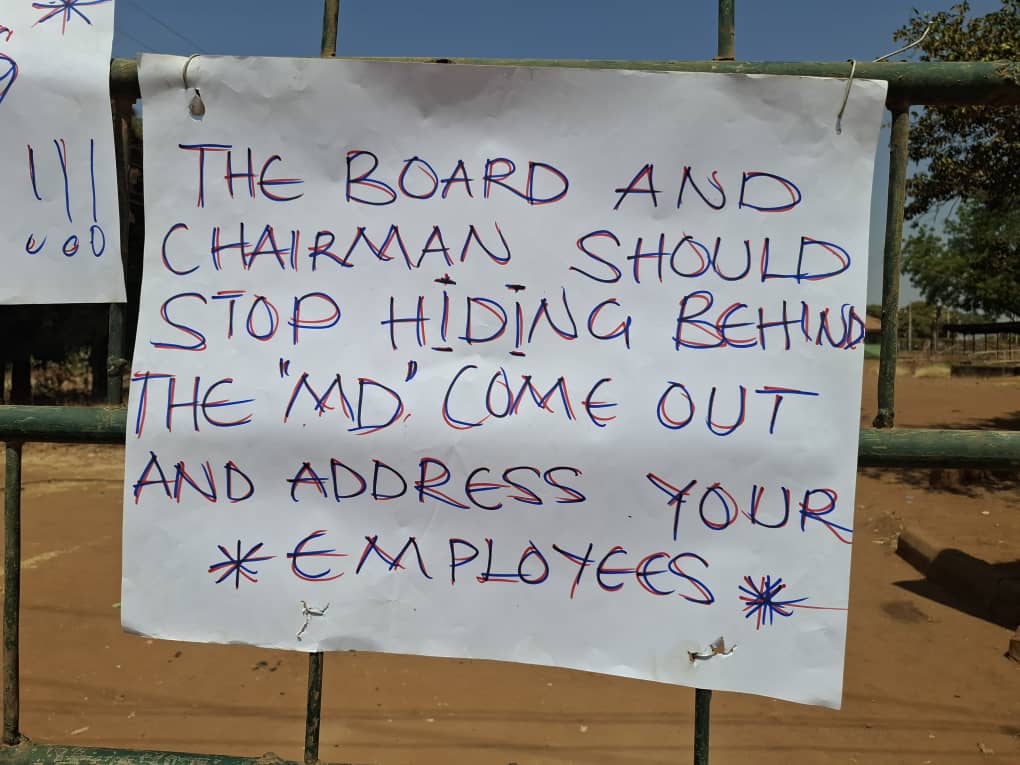 !!!
THE BOARD AND
CHAIRMAN SHOULD
STOP HIDING BEHIND
THE "MD". COME OUT
AND ADDRESS YOUR
*EMPLOYEES*